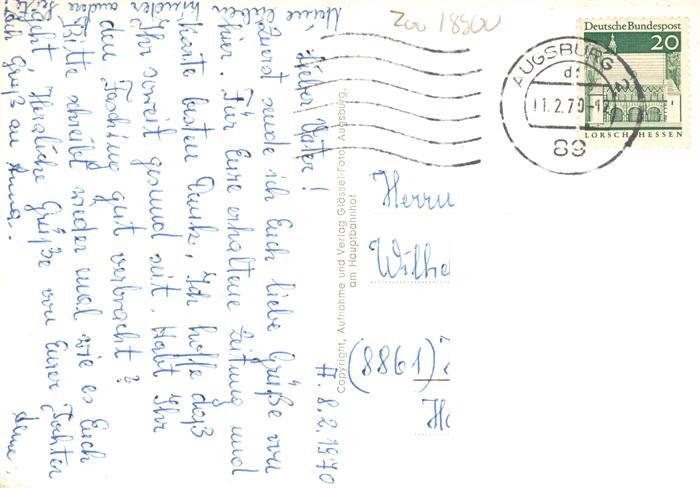 Zoo 18500
Deutsche Bundespost
20
LORSCH/HESSEN
AUGSBURG 2
df
11.2.70-12
89
A. 8.2.1970
Lieber Vater!
Zuerst sende ich Euch liebe Grüße von
hier. Für Eure erhaltene Zeitung und
Karte besten Dank, Ich hoffe daß
Ihr soweit gesund seit. Habt Ihr
den Fasching gut verbracht?
Bitte schreibt wieder mal wie es Euch
geht. Herzliche Grüße von Eurer Tochter
Gruß an Anna.
Copyright, Aufnahme und Verlag Glässel-Foto, Augsburg,
am Hauptbahnhof
Herrn
Wilhe
(8861)